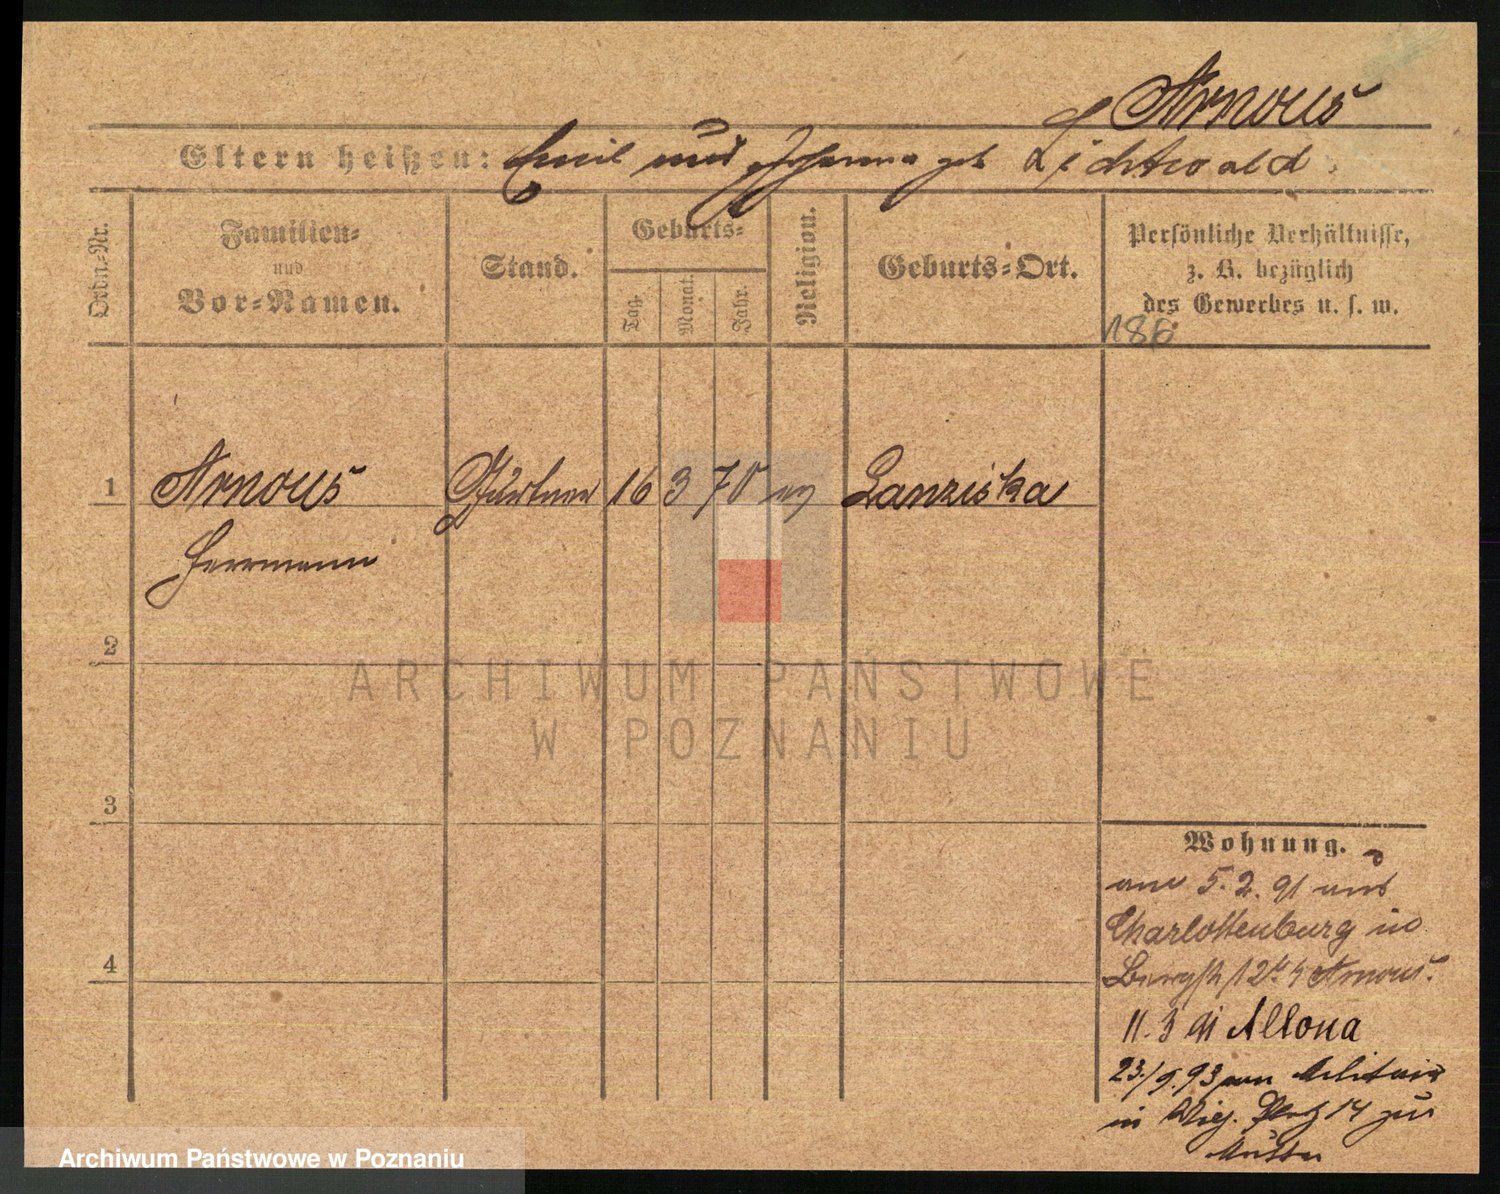 Arnous
Eltern heißen: Emil und Johanna geb Lichtwald.
Ordn.-Nr.
Familien-
und
Vor-Namen.
Stand.
Geburts-
Tag.
Monat.
Jahr.
Religion.
Geburts-Ort.
Persönliche Verhältnisse,
z. B. bezüglich
des Gewerbes u. s. w.
186
1 Arnous Gärtner 16 3 70 ev Lanziska
Herrmann
2
ARCHIWUM PAŃSTWOWE
W POZNANIU
3
4
Wohnung.
5. 2. 91 aus
Charlottenburg in
Bergstr 12 b Arnous.
11. 3 91 Altona
23./9. 93 vom Militair
in Platz 14 zur
Mutter
Archiwum Państwowe w Poznaniu